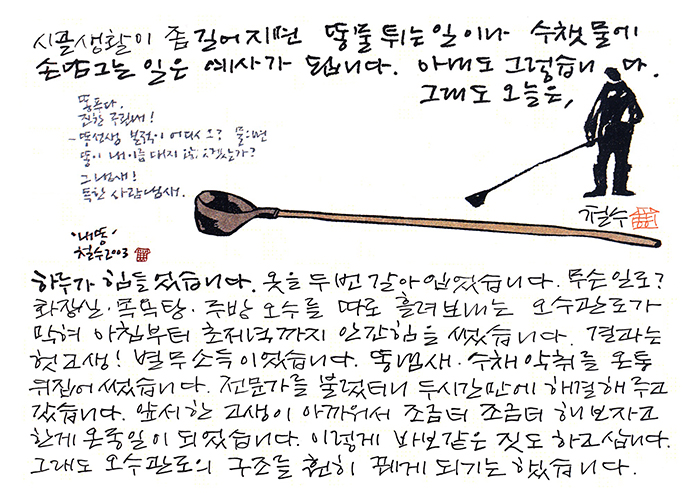 시골생활이 좀 길어지면 똥물 튀는 일이나 수챗물에
손담그는 일은 예사가 됩니다. 아내도 그렇습니다.
그래도 오늘은,
똥푸다.
진한 구린내!
- 똥선생 본적이 어디시오? 물으면
똥이 내 이름 대지 않겠는가?
그 냄새!
독한 사람냄새.
'내똥'
철수2003
철수
하루가 힘들었습니다. 옷을 두번 갈아입었습니다. 무슨일로?
화장실·목욕탕·주방 오수를 따로 흘려보내는 오수관로가
막혀 아침부터 초저녁까지 안간힘을 썼습니다. 결과는
헛고생! 별무소득이었습니다. 똥냄새·수채악취를 온통
뒤집어썼습니다. 전문가를 불렀더니 두시간만에 해결해주고
갔습니다. 앞서한 고생이 아까워서 조금더 조금더 해보자고
한게 온종일이 되었습니다. 이렇게 바보같은 짓도 하고 삽니다.
그래도 오수관로의 구조를 훤히 꿰게 되기는 했습니다.